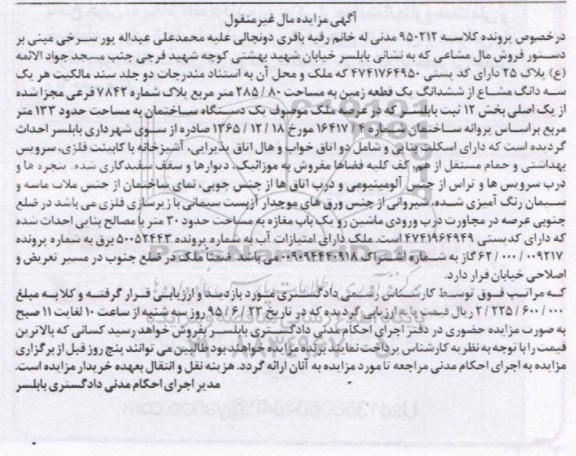 آگهی مزایده مال غیر منقول
درخصوص پرونده کلاسه ۹۵۰۲۱۲ مدنی له خانم رقیه باقری دونچالی علیه محمدعلی عبداله پور سرخی مبنی بر
دستور فروش مال مشاعی که به نشانی بابلسر خیابان شهید بهشتی کوچه شهید فرجی جنب مسجد جواد الائمه
(ع) پلاک ۲۵ دارای کد پستی ۴۷۴۱۷۶۴۹۵۰ که ملک و محل آن به استناد مندرجات دو جلد سند مالکیت هر یک
سه دانگ مشاع از ششدانگ یک قطعه زمین به مساحت ۸۰ / ۲۸۵ متر مربع پلاک شماره ۷۸۴۲ فرعی مجزا شده
از یک اصلی بخش ۱۲ ثبت بابلسر که در عرصه ملک موصوف یک دستگاه ساختمان به مساحت حدود ۱۳۳ متر
مربع براساس پروانه ساختمان شماره ۱۶۴۱۷ مورخ ۱۸ / ۱۲ / ۱۳۶۵ صادره از سوی شهرداری بابلسر احداث
گردیده است که دارای اسکلت بنایی و شامل دو اتاق خواب و هال اتاق پذیرایی، آشپزخانه با کابینت فلزی، سرویس
بهداشتی و حمام مستقل از هم، کف کلیه فضاها مفروش به موزائیک، دیوارها و سقف سفیدکاری شده، پنجره ها و
درب سرویس ها و تراس از جنس آلومینیومی و درب اتاق ها از جنس چوبی، نمای ساختمان از جنس ملات ماسه و
سیمان رنگ آمیزی شده، شیروانی از جنس ورق های موجدار آزبست سیمانی با زیرسازی فلزی می باشد در ضلع
جنوبی عرصه در مجاورت درب ورودی ماشین رو یک باب مغازه به مساحت حدود ۳۰ متر با مصالح بنایی احداث شده
که دارای کدپستی ۴۷۴۱۹۶۴۹۴۹ است. ملک دارای امتیازات آب به شماره پرونده ۵۰۰۵۲۴۴۳ برق به شماره پرونده
۰۰۹۲۱۷ / ۰۰۰ / ۶۲ گاز به شماره اشتراک ۰۰۹۰۹۴۴۰۹۱۸ می باشد. ضمنا ملک در ضلع جنوب در مسیر تعریض و
اصلاحی خیابان قرار دارد.
که مراتب فوق توسط کارشناس رسمی دادگستری مورد بازدید و ارزیابی قرار گرفته و کلا به مبلغ
۰۰۰ / ۶۰۰ / ۲۲۵ / ۲ ریال قیمت پایه ارزیابی گردیده که در تاریخ ۲۳ / ۶ / ۹۵ روز سه شنبه از ساعت ۱۰ لغایت ۱۱ صبح
به صورت مزایده حضوری در دفتر اجرای احکام مدنی دادگستری بابلسر بفروش خواهد رسید کسانی که بالاترین
قیمت را با توجه به نظریه کارشناس پرداخت نمایند برنده مزایده خواهند بود طالبین می توانند پنج روز قبل از برگزاری
مزایده به اجرای احکام مدنی مراجعه تا مورد مزایده به آنان ارائه گردد. هزینه نقل و انتقال بعهده خریدار مزایده است.
مدیر اجرای احکام مدنی دادگستری بابلسر